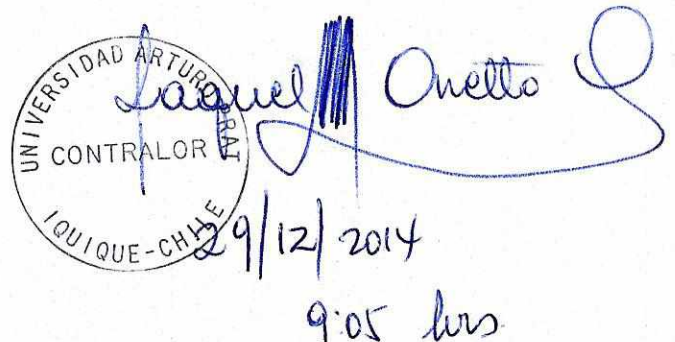 UNIVERSIDAD ARTURO PRAT
CONTRALOR
IQUIQUE-CHILE
Raquel Onetto
29/12/2014
9:05 hrs